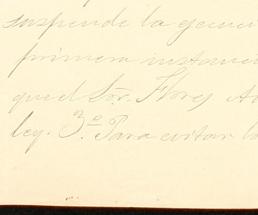 suspende la ejecu
primera instanci
que el Sor. Flores
ley. 3o. Para evitar